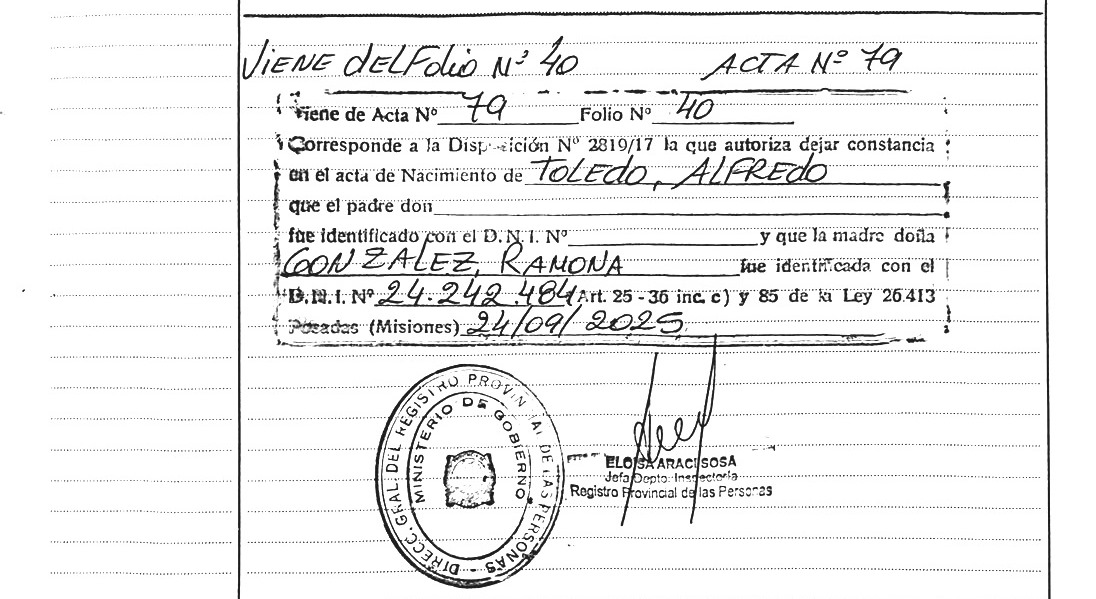 VIENE DEL Folio Nº 40 ACTA Nº 79
Viene de Acta Nº 79 Folio Nº 40
Corresponde a la Disposición Nº 2819/17 la que autoriza dejar constancia
en el acta de Nacimiento de TOLEDO, ALFREDO
que el padre don
fue identificado con el D.N.I. Nº y que la madre doña
GONZALEZ, RAMONA fue identificada con el
D.N.I. Nº 24.242.484 Art. 25 - 36 inc. c) y 85 de la Ley 26.413
Posadas (Misiones) 24/09/2025
DIRECC. GRAL. DEL REGISTRO PROVINCIAL DE LAS PERSONAS -
MINISTERIO DE GOBIERNO
ELOISA ARACI SOSA
Jefa Dpto. Inspectoría
Registro Provincial de las Personas